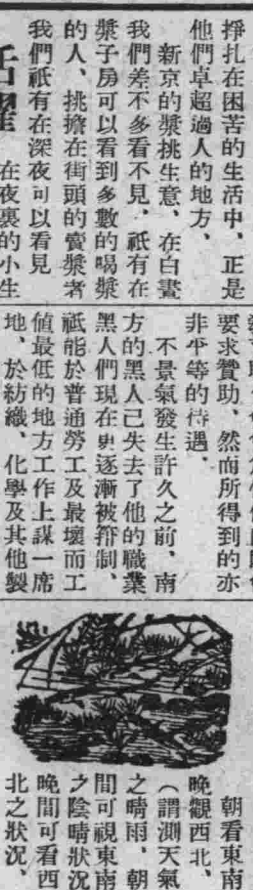 掙扎在困苦的生活中、正是
他們卓超過人的地方、
新京的漿挑生意、在白晝
我們差不多看不見、祇有在
漿子房可以看到多數的喝漿
的人、挑擔在街頭的賣漿者
我們祇有在深夜可以看見
活躍
在夜裏的小生
要求贊助、然而所得到的亦
非平等的待遇、
不景氣發生許久之前、南
方的黑人已失去了他的職業
黑人們現在更逐漸被箝制、
祇能於普通勞工及最壞而工
値最低的地方工作上謀一席
地、於紡織、化學及其他製
朝看東南
晚觀西北、
（謂測天氣
之晴雨、朝
間可視東南
之陰晴狀況
晚間可看西
北之狀況、